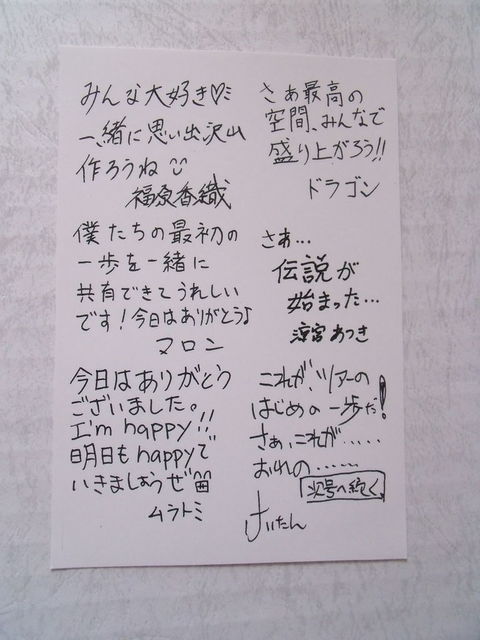 みんな大好き♡
一緒に思い出沢山
作ろうね
福原香織
僕たちの最初の
一歩を一緒に
共有できてうれしい
です!今日はありがとう♪
マロン
今日はありがとう
ございました。
I'm happy!!
明日もhappyで
いきましょうぜ
ムラトミ
さぁ最高の
空間、みんなで
盛り上がろう!!
ドラゴン
さぁ…
伝説が
始まった…
涼宮あつき
これが、ツアーの
はじめの一歩だ!
さぁ、これが……
おれの……
次号へ続く
けいたん